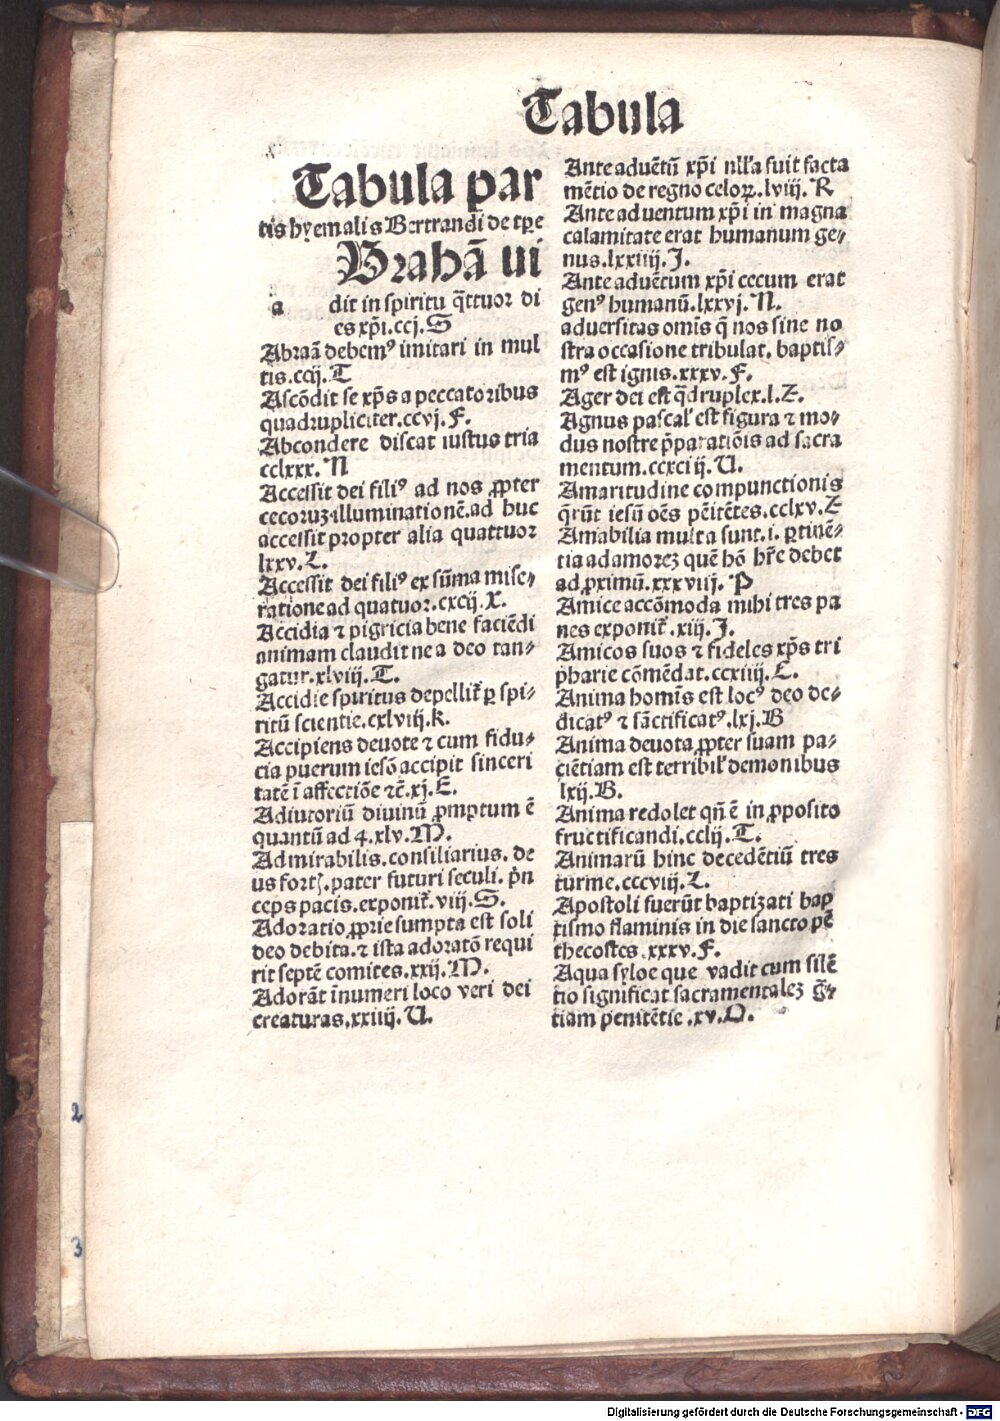 Tabula
Tabula par
tis hyemalis Bertrandi de tꝑe
Brahã ui
a dit in spiritu q̃ttuor di
es xp̃i.ccj.S
Abraã debemꝰ imitari in mul
tis.ccij.T
Ascõdit se xp̃s a peccatoribus
quadrupliciter.ccvj.F.
Abcondere discat iustus tria
cclxxx.N
Accessit dei filiꝰ ad nos ꝓpter
cecoruz illuminationẽ.ad huc
accessit propter alia quattuor
lxxv.L.
Accessit dei filiꝰ ex sũma mise⸗
ratione ad quatuor.cxcij.X.
Accidia ⁊ pigricia bene faciẽdi
animam claudit ne a deo tan⸗
gatur.xlviij.T.
Accidie spiritus depellit̃ ꝑ spi⸗
ritũ scientie.cxlviij.k.
Accipiens deuote ⁊ cum fidu⸗
cia puerum iesõ accipit sinceri
tatẽ ĩ affectiõe ⁊c̃.xj.E.
Adiutoriũ diuinũ ꝓmptum ẽ
quantũ ad 4.xlv.M.
Admirabilis.consiliarius.de
us fort⁊.pater futuri seculi.p̃n
ceps pacis.exponit̃.viij.S.
Adoratio ꝓprie sumpta est soli
deo debita.⁊ ista adoratõ requi
rit septẽ comites.xxij.M.
Adorãt ĩnumeri loco veri dei
creaturas.xxiiij.U.
Ante aduẽtũ xp̃i nll'a fuit facta
mẽtio de regno celoꝝ.lviij.R
Ante aduentum xp̃i in magna
calamitate erat humanum ge⸗
nus.lxxiiij.J.
Ante aduẽtum xp̃i cecum erat
genꝰ humanũ.lxxvj.N.
aduersitas omis q̃ nos sine no
stra occasione tribulat.baptis⸗
mꝰ est ignis.xxxv.F.
Ager dei est q̃druplex.l.Z.
Agnus pascal' est figura ⁊ mo⸗
dus nostre p̃paratiõis ad sacra
mentum.ccxcij.U.
Amaritudine compunctionis
q̃rũt iesũ oẽs pẽitẽtes.cclxv.Z
Amabilia multa sunt.i.ꝑtinẽ⸗
tia ad amorez que hõ hr̃e debet
ad ꝓximũ.xxxviij.P
Amice accõmoda mihi tres pa
nes exponit̃.xiij.J.
Amicos suos ⁊ fideles xp̃s tri
pharie cõmẽdat.ccxiiij.L.
Anima homĩs est locꝰ deo de⸗
dicatꝰ ⁊ sãctificatꝰ.lxj.B
Anima deuota ꝓpter suam pa⸗
ciẽtiam est terribil' demonibus
lxij.B.
Anima redolet qñ ẽ in ꝓposito
fructificandi.cclij.T.
Animarũ hinc decedẽtiũ tres
turme.cccviij.L.
Apostoli fuerũt baptizati bap
tismo flaminis in die sancto pẽ
thecostes.xxxv.F.
Aqua syloe que vadit cum silẽ
tio significat sacramentalez g̃⸗
tiam penitẽtie.xv.O.
2
3
Digitalisierung gefördert durch die Deutsche Forschungsgemeinschaft - DFG